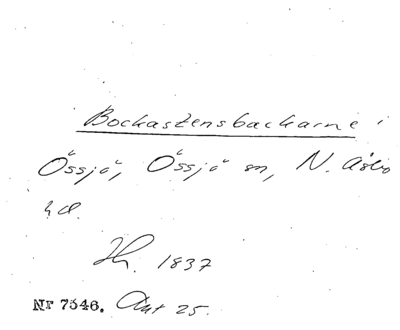 Bockastensbackarne i
Össjö, Össjö sn, N. Åsbo
hd.
Jh. 1837
Nr 7546. Ant 25.